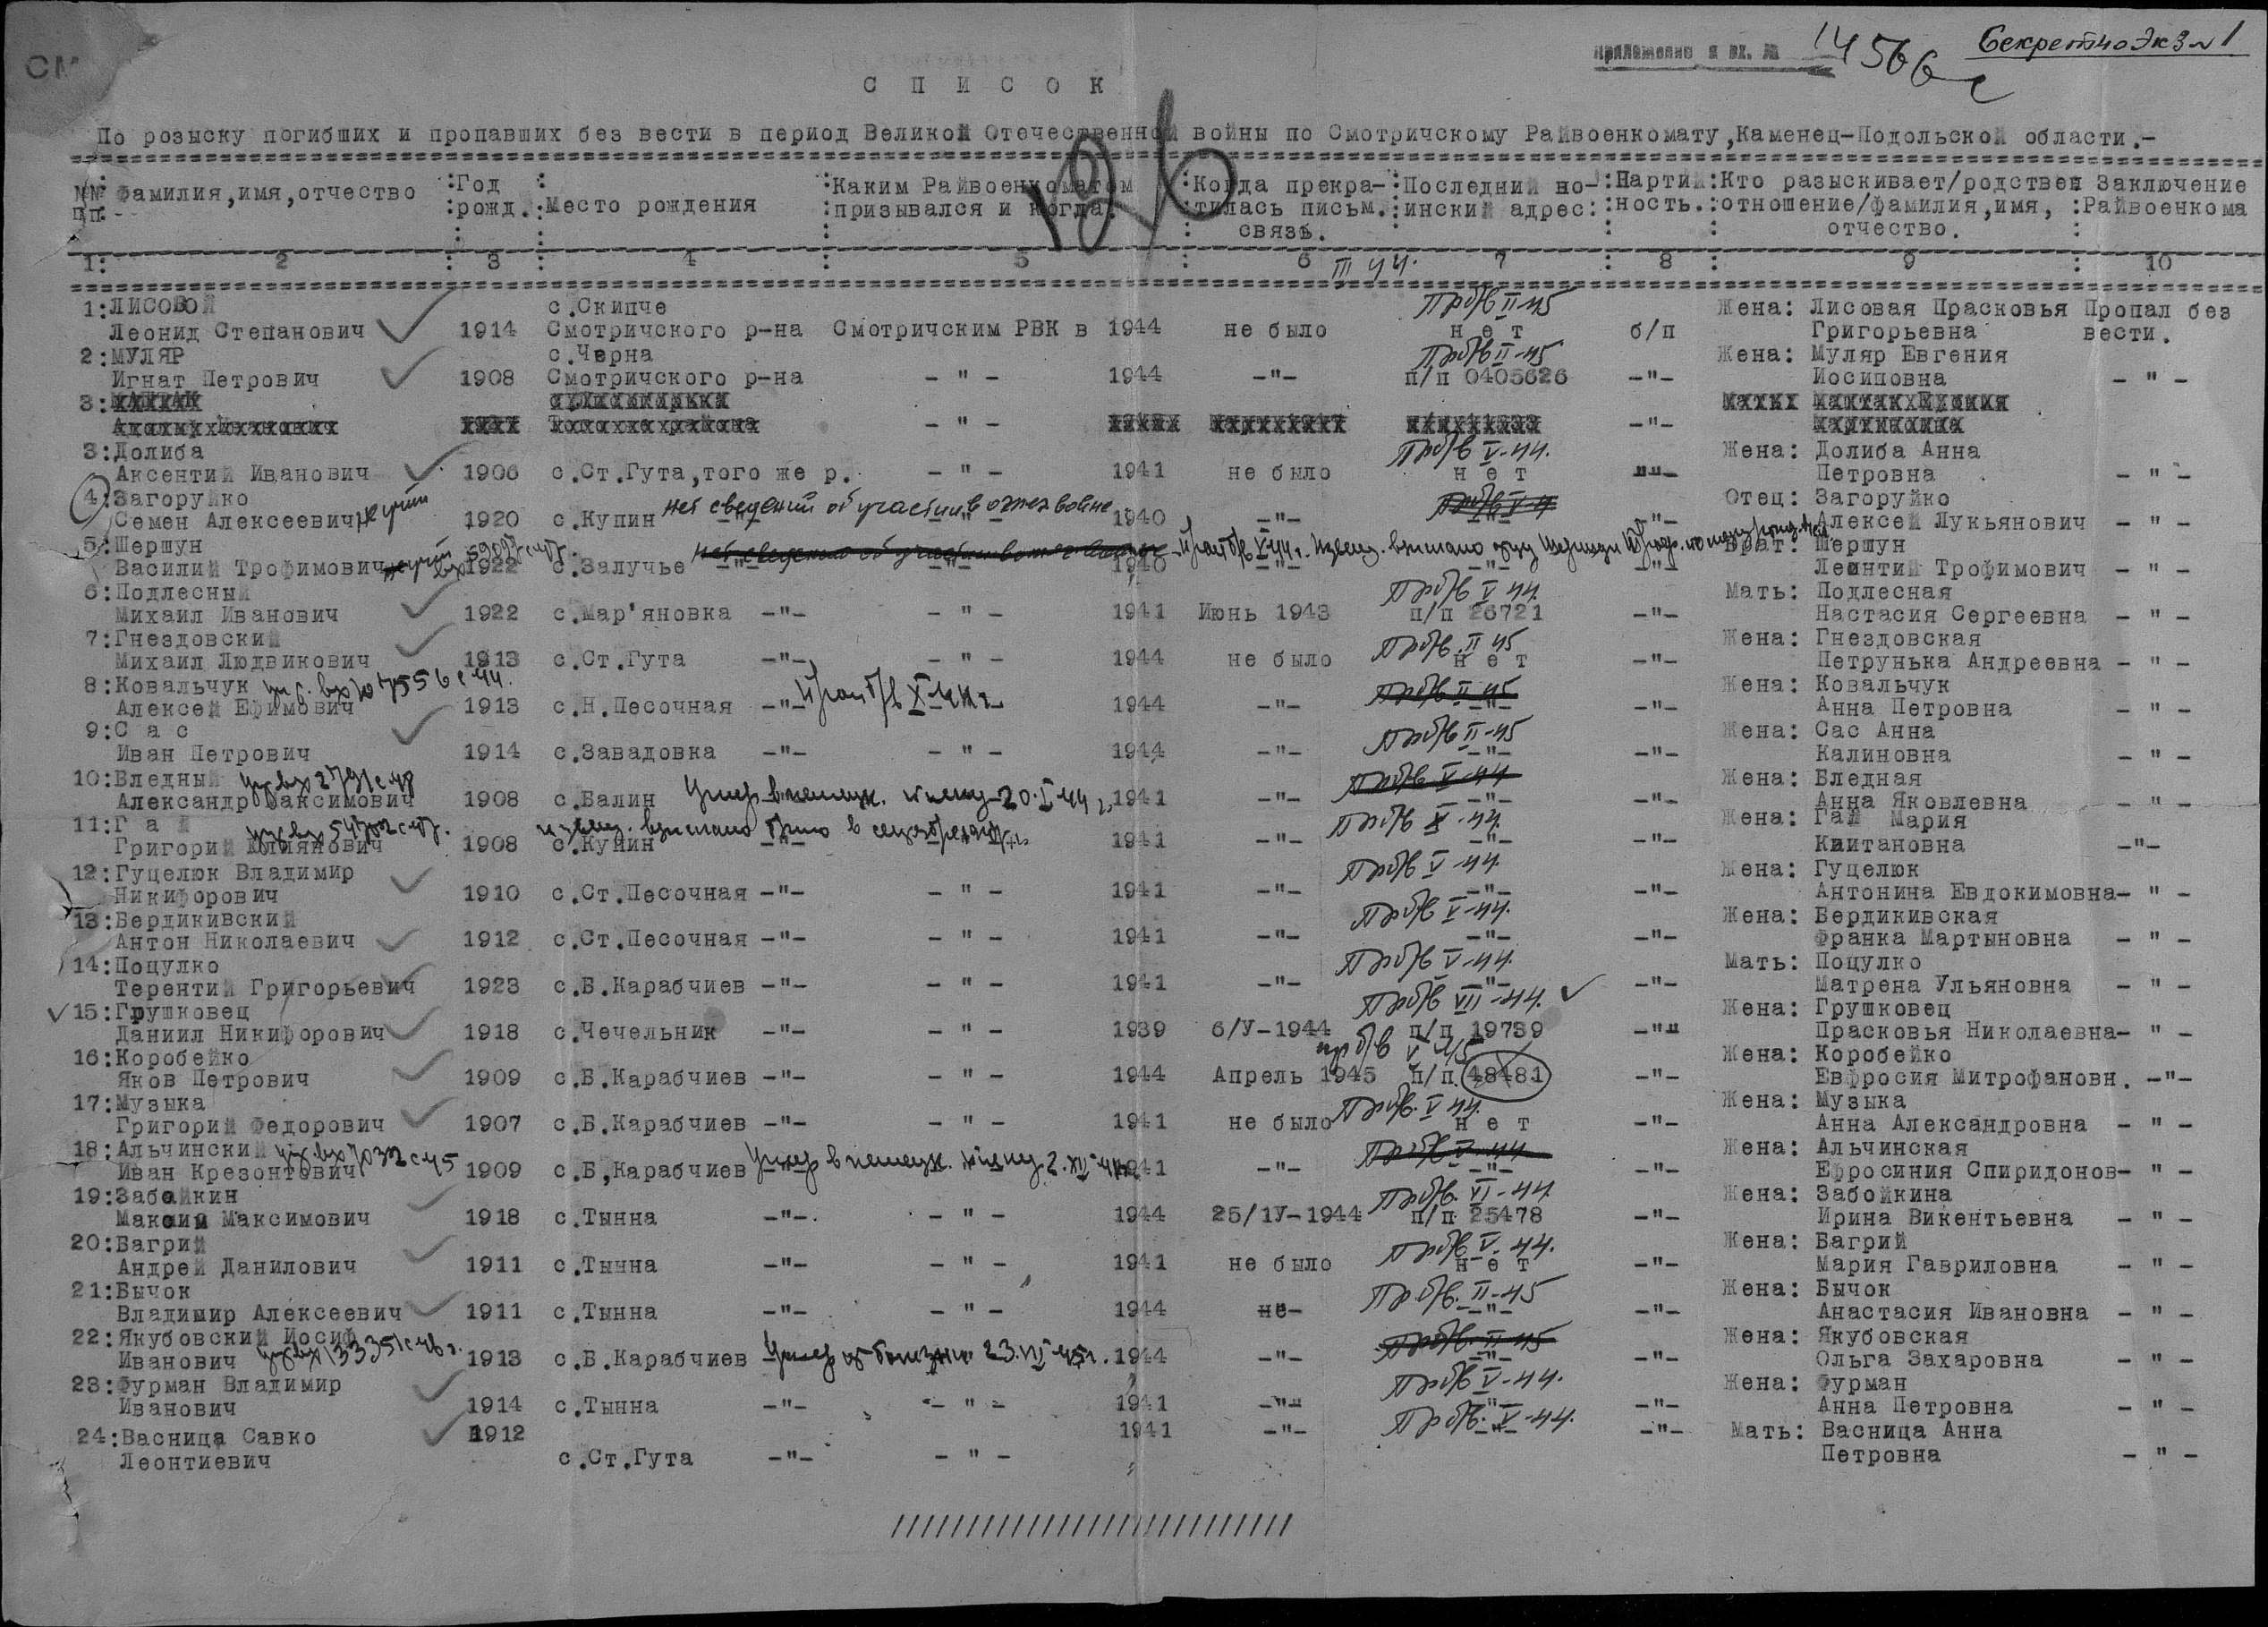 СМ
Приложение к вх. № 14566с Секретно Экз №1
С П И С О К
По розыску погибших и пропавших без вести в период Великой Отечественной войны по Смотричскому Райвоенкомату,Каменец-Подольской области.-
№№ Фамилия,имя,отчество :Год : :Каким Райвоенкоматом :Когда прекра-:Последний во-:Партий:Кто разыскивает/родствен Заключение
п/п:- :рожд.:Место рождения :призывался и когда. :тилась письм.:инский адрес: :ность.:отношение/фамилия,имя, :Райвоенкома
связь. отчество.
1: 2 : 3 : 4 : 5 : 6 7 : 8 : 9 : 10
III 44.
1:ЛИСОВОЙ с.Скипче Пр б/в II-45 Жена: Лисовая Прасковья Пропал без
Леонид Степанович 1914 Смотричского р-на Смотричским РВК в 1944 не было н е т б/п Григорьевна вести.
2:МУЛЯР с.Черна Пр б/в II-45 Жена: Муляр Евгения
Игнат Петрович 1908 Смотричского р-на - " - 1944 -"- п/п 0405626 -"- Иосиповна - " -
3:
- " - -"-
3:Долиба Пр б/в V-44. Жена: Долиба Анна
Аксентий Иванович 1906 с.Ст.Гута,того же р. - " - 1941 не было н е т -"- Петровна - " -
4:Загоруйко нет сведений об участии в отеч войне Пр б/в V-4 Отец: Загоруйко
Семен Алексеевич 1920 с.Купин -"- - " - 1940 -"- -"- -"- Алексей Лукьянович - " -
5:Шершун нет сведений об участии в отеч войне Проп б/в V-44 г. Извещ. выслано отцу Брат: Шершун
Василий Трофимович 1922 с.Залучье -"- - " - 1940 -"- -"- -"- Леинтий Трофимович - " -
6:Подлесный Пр б/в V 44. Мать: Подлесная
Михаил Иванович 1922 с.Мар'яновка -"- - " - 1941 Июнь 1943 п/п 26721 -"- Настасия Сергеевна - " -
7:Гнездовский Пр б/в. II 45 Жена: Гнездовская
Михаил Людвикович 1913 с.Ст.Гута -"- - " - 1944 не было н е т -"- Петрунька Андреевна - " -
8:Ковальчук Проп б/в X-44 г. Пр б/в II-45 Жена: Ковальчук
Алексей Ефимович 1913 с.Н.Песочная -"- 1944 -"- -"- -"- Анна Петровна - " -
9:С а с Пр б/в II-45 Жена: Сас Анна
Иван Петрович 1914 с.Завадовка -"- - " - 1944 -"- -"- -"- Калиновна - " -
10:Бледный Пр б/в V-44 Жена: Бледная
Александр Максимович 1908 с.Балин Умер в немецк. плену 20.I-44 г. 1941 -"- -"- -"- Анна Яковлевна - " -
11:Г а й извещ. выслано Пр б/в X-44. Жена: Гай Мария
Григорий 1908 с.Купин 1941 -"- -"- -"- Квитановна -"-
12:Гуцелюк Владимир Пр б/в V-44. Жена: Гуцелюк
Никифорович 1910 с.Ст.Песочная -"- - " - 1941 -"- -"- -"- Антонина Евдокимовна- " -
13:Бердикивский Пр б/в V-44. Жена: Бердикивская
Антон Николаевич 1912 с.Ст.Песочная -"- - " - 1941 -"- -"- -"- Франка Мартыновна - " -
14:Поцулко Пр б/в V-44. Мать: Поцулко
Терентий Григорьевич 1923 с.Б.Карабчиев -"- - " - 1941 -"- -"- -"- Матрена Ульяновна - " -
15:Грушковец Пр б/в VIII-44. Жена: Грушковец
Даниил Никифорович 1918 с.Чечельник -"- - " - 1939 6/У-1944 п/п 19739 -"- Прасковья Николаевна- " -
16:Коробейко пр б/в V 45 Жена: Коробейко
Яков Петрович 1909 с.Б.Карабчиев -"- - " - 1944 Апрель 1945 п/п 48481 -"- Евфросия Митрофановн. -"-
17:Музыка Пр б/в. V 44. Жена: Музыка
Григорий Федорович 1907 с.Б.Карабчиев -"- - " - 1941 не было н е т -"- Анна Александровна - " -
18:Альчинский Пр б/в V-44 Жена: Альчинская
Иван Крезонтович 1909 с.Б,Карабчиев Умер в немецк. плену 2.XII-44г. 1941 -"- -"- -"- Ефросиния Спиридонов- " -
19:Забойкин Пр б/в. VI-44. Жена: Забойкина
Максим Максимович 1918 с.Тынна -"-. - " - 1944 25/1У-1944 п/п 25478 -"- Ирина Викентьевна - " -
20:Багрий Пр б/в V-44. Жена: Багрий
Андрей Данилович 1911 с.Тынна -"- - " - 1941 не было н е т -"- Мария Гавриловна - " -
21:Бычок Пр б/в. II-45 Жена: Бычок
Владимир Алексеевич 1911 с.Тынна -"- - " - 1944 -"- -"- -"- Анастасия Ивановна - " -
22:Якубовский Иосиф Пр б/в. II 45 Жена: Якубовская
Иванович 1913 с.Б.Карабчиев Умер от болезни 23.VI-45г. 1944 -"- -"- -"- Ольга Захаровна - " -
23:Фурман Владимир Пр б/в V-44. Жена: Фурман
Иванович 1914 с.Тынна -"- - " - 1941 -"- -"- -"- Анна Петровна - " -
24:Васница Савко 1912 1941 -"- Пр б/в. V-44. -"- Мать: Васница Анна
Леонтиевич с.Ст.Гута -"- - " - Петровна - " -